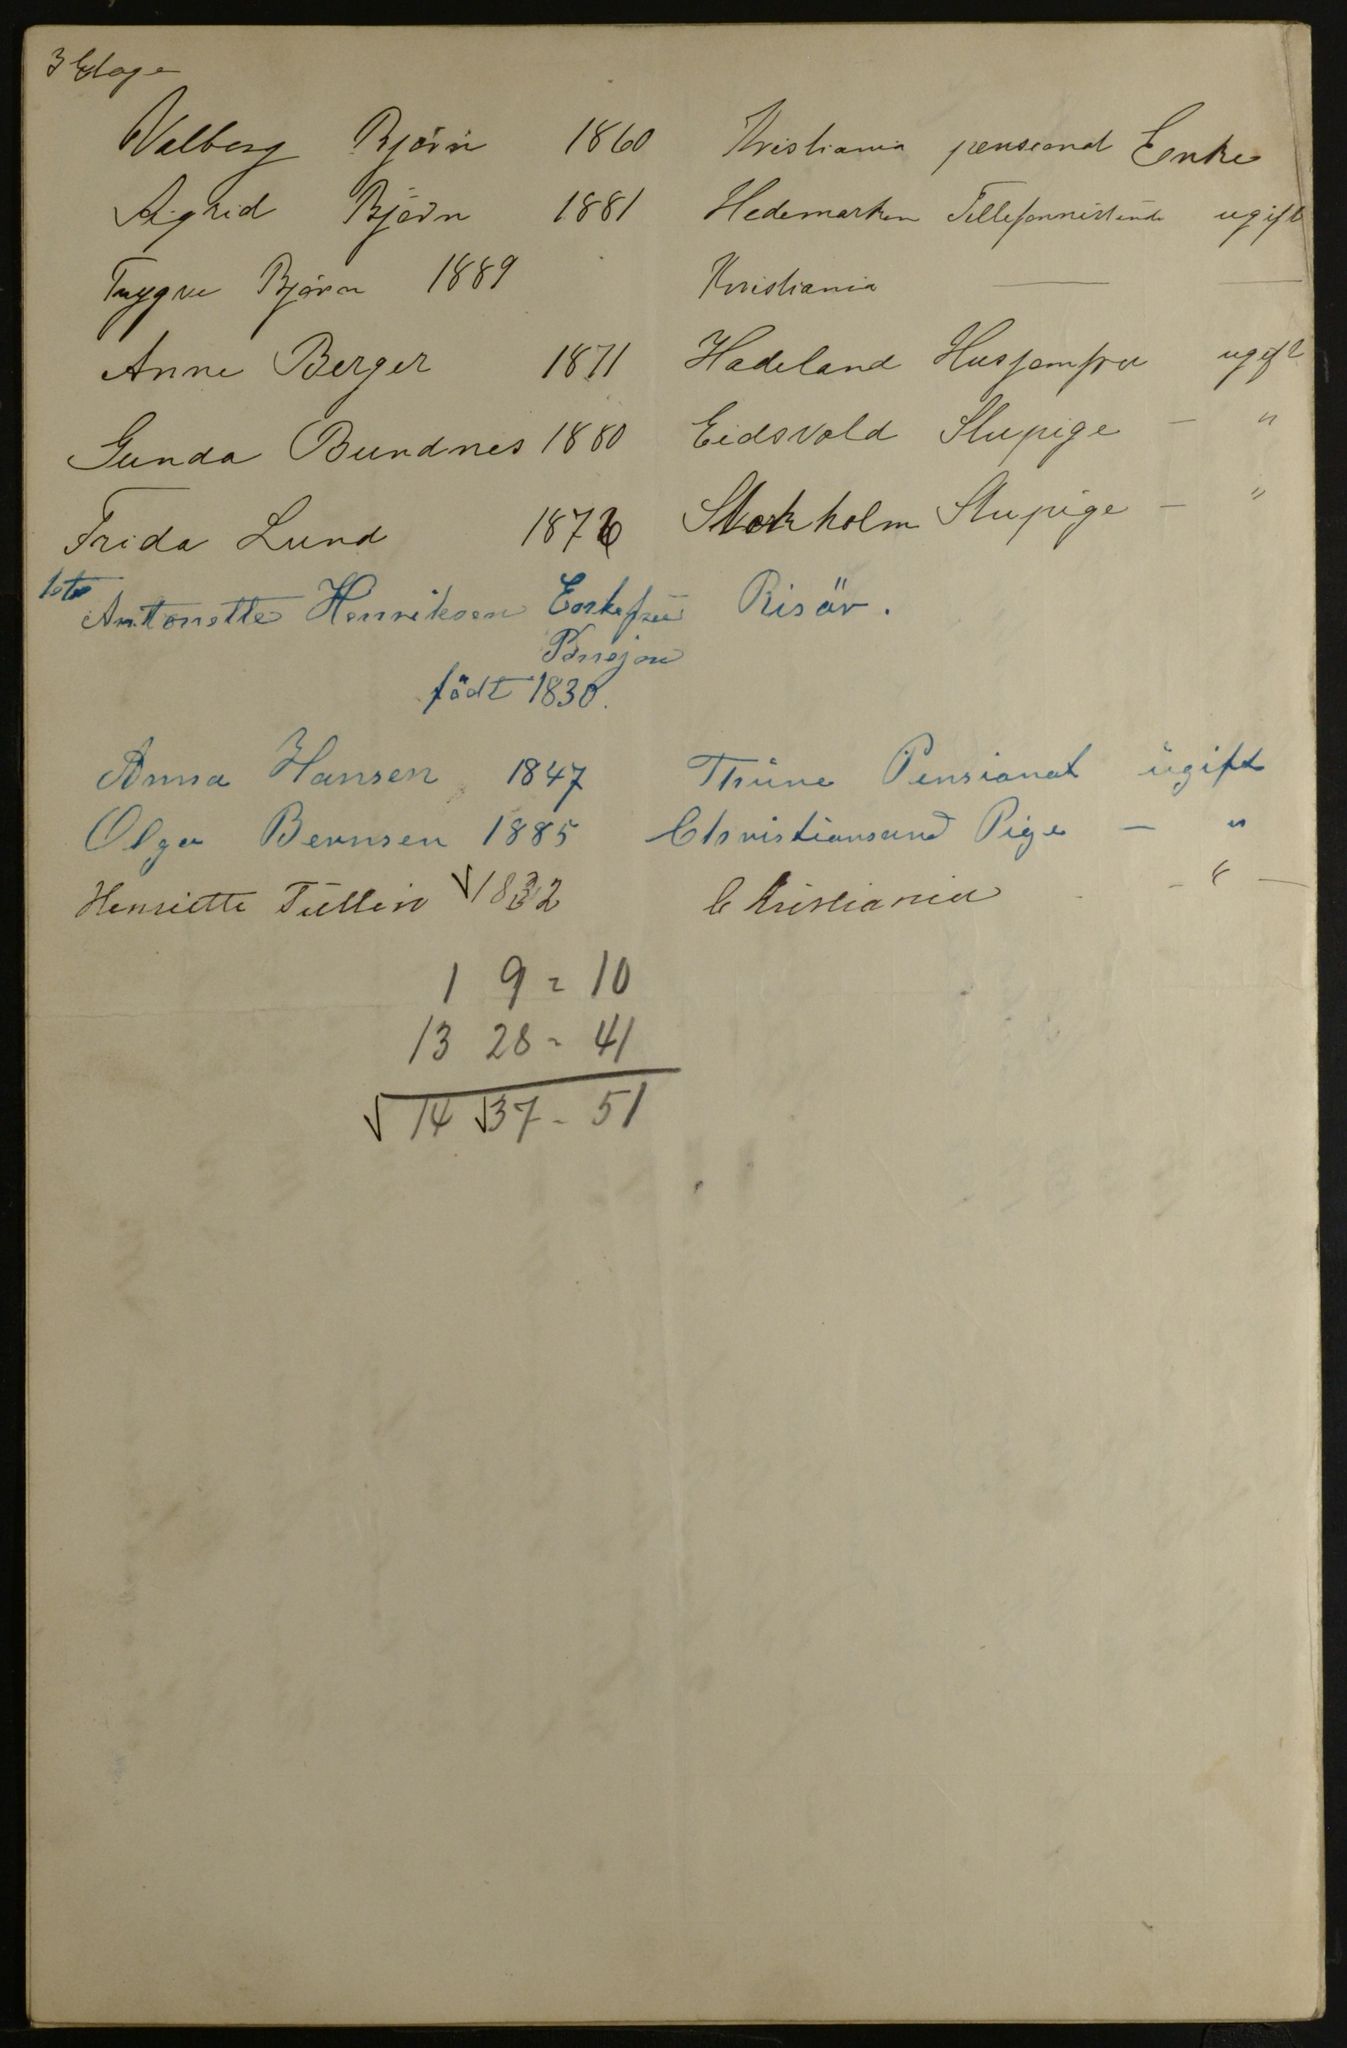 3 Etage
Valborg Björn 1860 Kristiania pensionat Enke
Sigrid Björn 1881 Hedemarken Tellefonnistinde ugift
Trygve Björn 1889 Kristiania — —
Anne Berger 1871 Hadeland Husjomfru ugift
Gunda Bundnes 1880 Eidsvold Stupige - "
Frida Lund 1876 Stokholm Stupige - "
1ste
Antonette Henriksen Enkefru Risör.
Pensjon
födt 1830.
Anna Hansen 1847 Thüne Pensionat ugift
Olga Bernsen 1885 Christiansand Pige - "
Henriette Tullin √1832 Christiania - " -
1 9 = 10
13 28 = 41
√14 √37 - 51